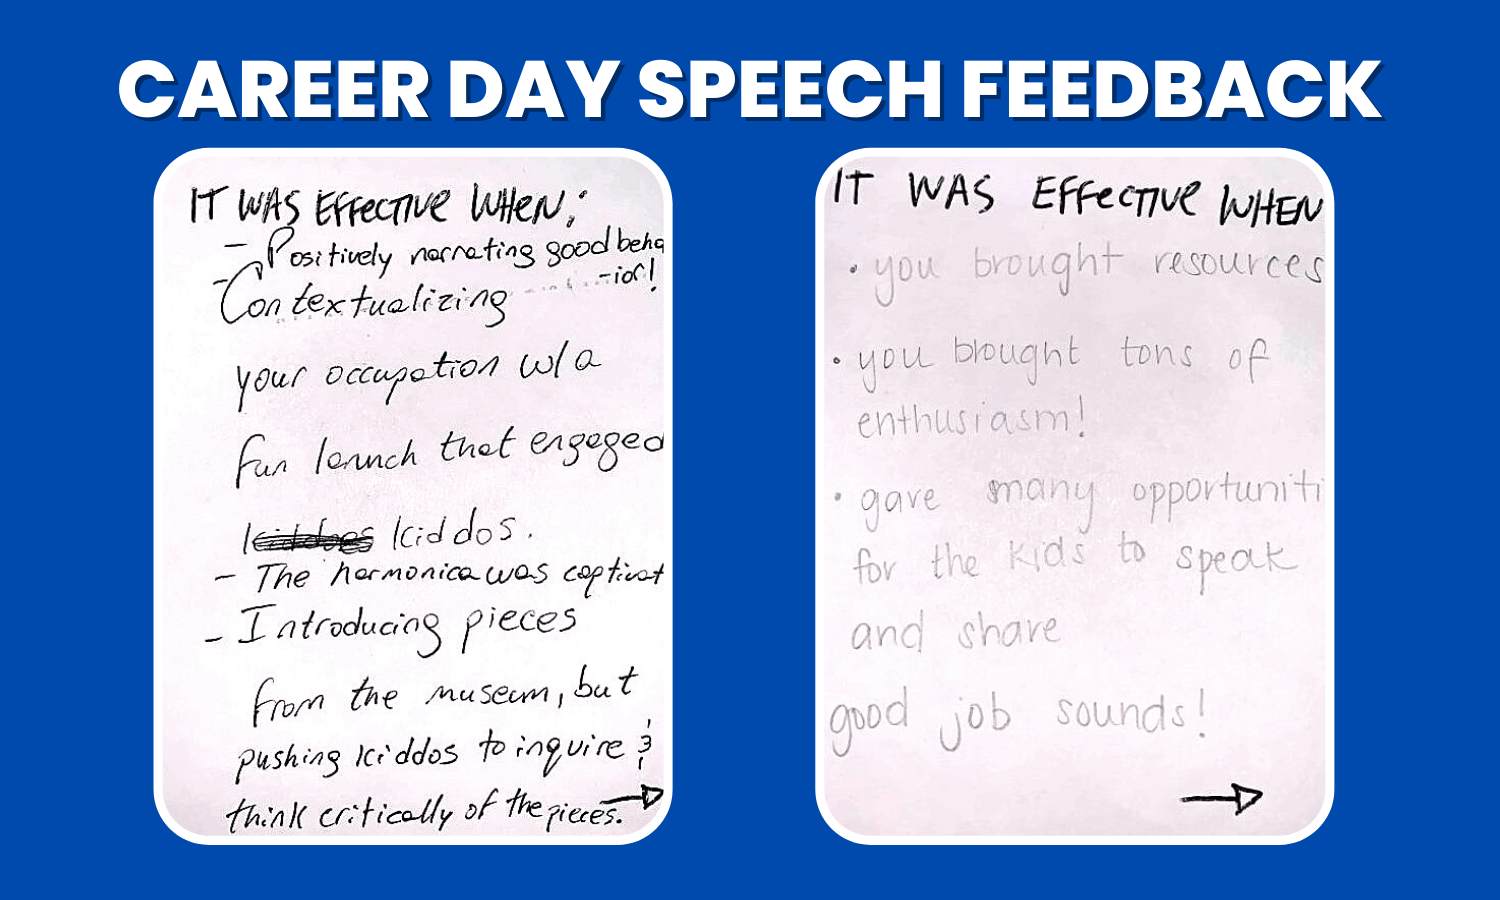 CAREER DAY SPEECH FEEDBACK
IT WAS EFFECTIVE WHEN:
- Positively narrating good beha
-ior!
- Contextualizing
your occupation w/ a
fun launch that engaged
kiddos.
- The harmonica was captivat
- Introducing pieces
from the museum, but
pushing kiddos to inquire &
think critically of the pieces.
IT WAS EFFECTIVE WHEN
• you brought resources
• you brought tons of
enthusiasm!
• gave many opportuniti
for the kids to speak
and share
good job sounds!